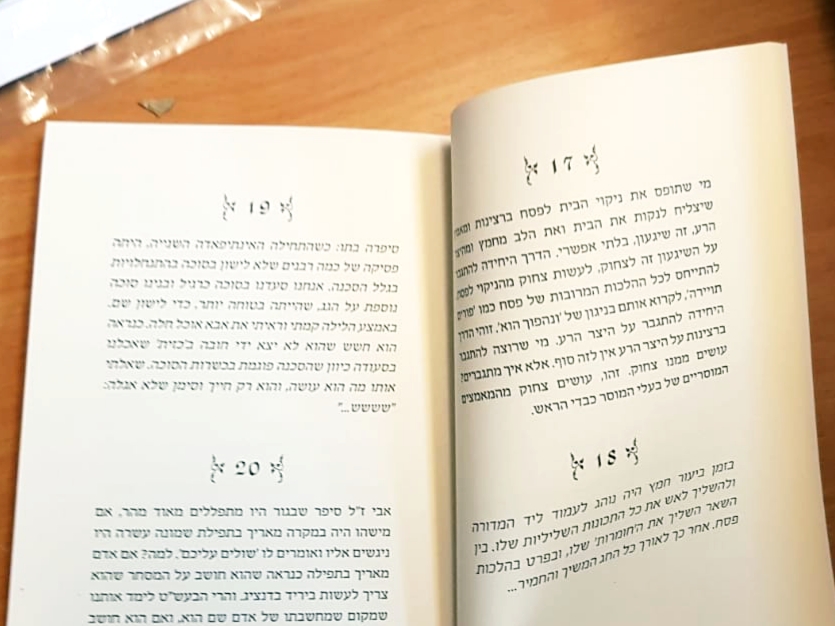 17
מי שתופס את ניקוי הבית לפסח ברצינות
שיצליח לנקות את הבית ואת הלב מחמץ
הרע, זה שיגעון, בלתי אפשרי. הדרך היחידה להתגבר
על השיגעון זה לצחוק, לעשות צחוק מהניקוי לפסח,
להתייחס לכל ההלכות המרובות של פסח כמו 'פורים
תויירה', לקרוא אותם בניגון של 'ונהפוך הוא'. זוהי הדרך
היחידה להתגבר על היצר הרע. מי שרוצה להתגבר
ברצינות על היצר הרע אין לזה סוף. אלא איך מתגברים?
עושים ממנו צחוק. זהו, עושים צחוק מהמאמצים
המוסריים של בעלי המוסר כבדי הראש.
18
בזמן ביעור חמץ היה נוהג לעמוד ליד המדורה
ולהשליך לאש את כל התכונות השליליות שלו. בין
השאר השליך את ה'חומרות' שלו, ובפרט בהלכות
פסח. אחר כך לאורך כל החג המשיך והחמיר...
19
סיפרה בתו: כשהתחילה האינתיפאדה השנייה, היתה
פסיקה של כמה רבנים שלא לישון בסוכה בהתנחלויות
בגלל הסכנה. אנחנו סעדנו בסוכה כרגיל ובנינו סוכה
נוספת על הגג, שהייתה בטוחה יותר, כדי לישון שם.
באמצע הלילה קמתי וראיתי את אבא אוכל חלה. כנראה
הוא חשש שהוא לא יצא ידי חובה ב'כזית' שאכלנו
בסעודה כיוון שהסכנה פוגמת בכשרות הסוכה. שאלתי
אותו מה הוא עושה, והוא רק חייך וסימן שלא אגלה:
"שששש..."
20
אבי ז"ל סיפר שבגור היו מתפללים מאוד מהר. אם
מישהו היה במקרה מאריך בתפילת שמונה עשרה היו
ניגשים אליו ואומרים לו 'שולים עליכם'. למה? אם אדם
מאריך בתפילה כנראה שהוא חושב על המסחר שהוא
צריך לעשות ביריד בדנציג. והרי הבעש"ט לימד אותנו
שמקום שמחשבתו של אדם שם הוא, ואם הוא חושב